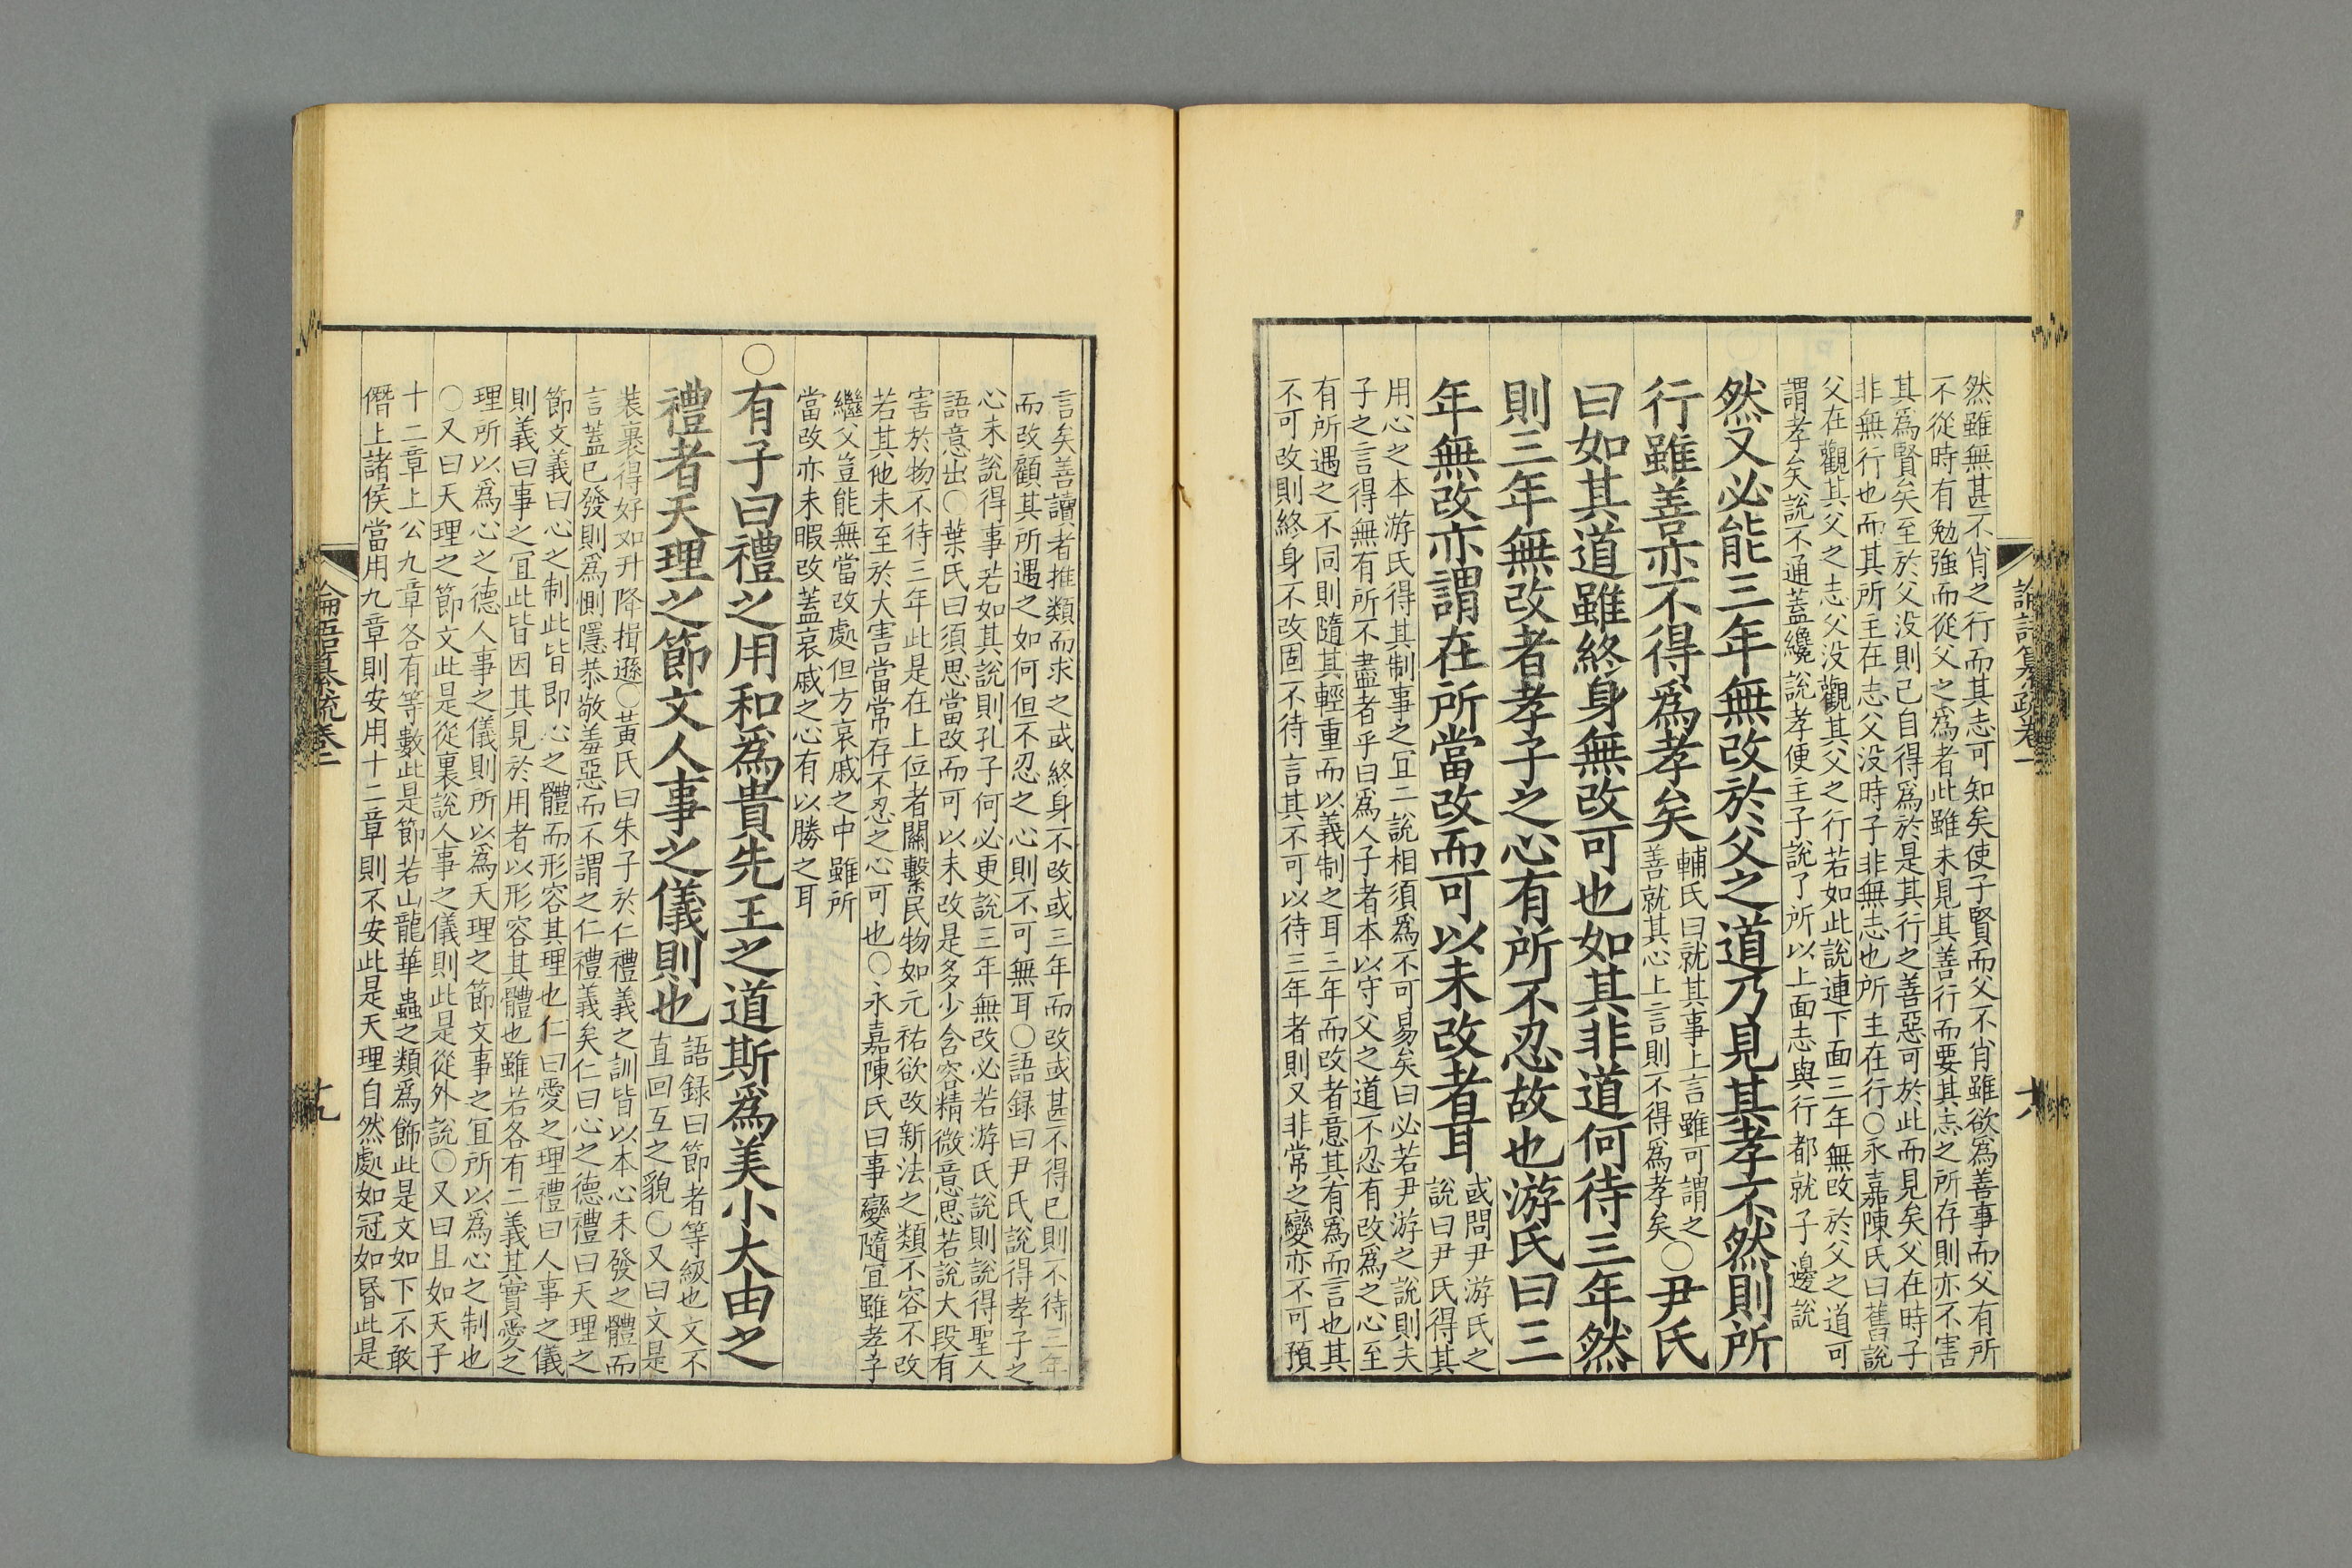 論語纂疏卷一
然雖無甚不肖之行而其志可知矣使子賢而父不肖雖欲爲善事而父有所
不從時有勉強而從父之爲者此雖未見其善行而要其志之所存則亦不害
其爲賢矣至於父没則己自得爲於是其行之善惡可於此而見矣父在時子
非無行也而其所主在志父没時子非無志也所主在行○永嘉陳氏曰舊說
父在觀其父之志父没觀其父之行若如此說連下面三年無改於父之道可
謂孝矣說不通蓋纔說孝便主子說了所以上面志與行都就子邊說
然又必能三年無改於父之道乃見其孝不然則所
行雖善亦不得爲孝矣
輔氏曰就其事上言雖可謂之
善就其心上言則不得爲孝矣
○尹氏
曰如其道雖終身無改可也如其非道何待三年然
則三年無改者孝子之心有所不忍故也游氏曰三
年無改亦謂在所當改而可以未改者耳
或問尹游氏之
說曰尹氏得其
用心之本游氏得其制事之宜二說相須爲不可易矣曰必若尹游之說則夫
子之言得無有所不盡者乎曰爲人子者本以守父之道不忍有改爲之心至
有所遇之不同則隨其輕重而以義制之耳三年而改者意其有爲而言也其
不可改則終身不改固不待言其不可以待三年者則又非常之變亦不可預
言矣善讀者推類而求之或終身不改或三年而改或甚不得已則不待三年
而改顧其所遇之如何但不忍之心則不可無耳○語録曰尹氏說得孝子之
心未說得事若如其說則孔子何必更說三年無改必若游氏說則說得聖人
語意出○葉氏曰須思當改而可以未改是多少含容精微意思若說大段有
害於物不待三年此是在上位者關繫民物如元祐欲改新法之類不容不改
若其他未至於大害當常存不忍之心可也○永嘉陳氏曰事變隨宜雖孝子
繼父豈能無當改處但方哀戚之中雖所
當改亦未暇改蓋哀戚之心有以勝之耳
○有子曰禮之用和爲貴先王之道斯爲美小大由之
禮者天理之節文人事之儀則也
語録曰節者等級也文不
直回互之貌○又曰文是
裝裹得好如升降揖遜○黃氏曰朱子於仁禮義之訓皆以本心未發之體而
言蓋已發則爲惻隱恭敬羞惡而不謂之仁禮義矣仁曰心之德禮曰天理之
節文義曰心之制此皆即心之體而形容其理也仁曰愛之理禮曰人事之儀
則義曰事之宜此皆因其見於用者以形容其體也雖若各有二義其實愛之
理所以爲心之德人事之儀則所以爲天理之節文事之宜所以爲心之制也
○又曰天理之節文此是從裏說人事之儀則此是從外說○又曰且如天子
十二章上公九章各有等數此是節若山龍華蟲之類爲飾此是文如下不敢
僭上諸侯當用九章則安用十二章則不安此是天理自然處如冠如昏此是
論語纂疏卷一
十九